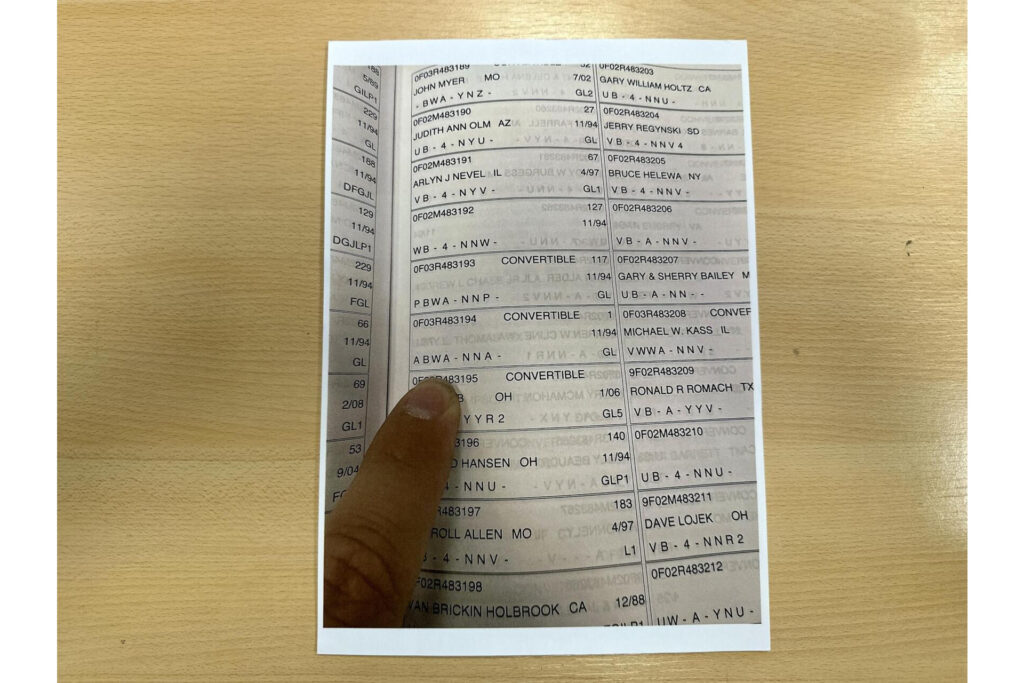 5/89
GILP1
229
11/94
GL
188
11/94
DFGJL
129
11/94
DGJLP1
229
11/94
FGL
66
11/94
GL
69
2/08
GL1
53
9/04
0F03R483189
JOHN MYER MO 7/02
- BWA - YNZ - GL2
0F02M483190 27
JUDITH ANN OLM AZ 11/94
UB - 4 - NYU - GL
0F02M483191 67
ARLYN J NEVEL IL 4/97
VB - 4 - NYV - GL1
0F02M483192 127
11/94
WB - 4 - NNW -
0F03R483193 CONVERTIBLE 117
11/94
PBWA - NNP - GL
0F03R483194 CONVERTIBLE 1
11/94
ABWA - NNA - GL
483195 CONVERTIBLE
OH 1/06
YYR2 GL5
483196 140
HANSEN OH 11/94
- NNU - GLP1
483197 183
ALLEN MO 4/97
- 4 - NNV - L1
0F02R483198
VAN BRICKIN HOLBROOK CA 12/88
0F02R483203
GARY WILLIAM HOLTZ CA
UB - 4 - NNU -
0F02R483204
JERRY REGYNSKI SD
VB - 4 - NNV4
0F02R483205
BRUCE HELEWA NY
VB - 4 - NNV -
0F02R483206
VB - A - NNV -
0F02R483207
GARY & SHERRY BAILEY M
UB - A - NN - -
0F03M483208 CONVER
MICHAEL W. KASS IL
VWWA - NNV -
9F02R483209
RONALD R ROMACH TX
VB - A - YYV -
0F02M483210
UB - 4 - NNU -
9F02M483211
DAVE LOJEK OH
VB - 4 - NNR2
0F02R483212
UW - A - YNU -